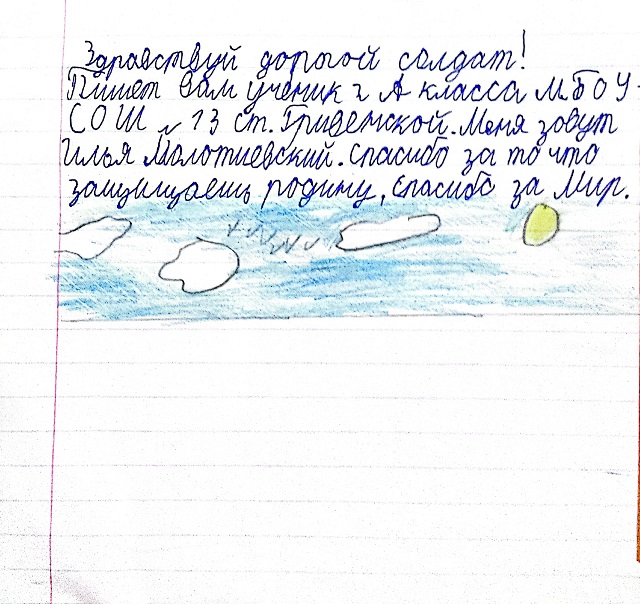 Здравствуй дорогой солдат!
Пишет Вам ученик 2 А класса МБОУ-
СОШ №13 ст. Гривенской. Меня зовут
Илья Молотиевский. спасибо за то что
защищаешь родину, спасибо за Мир.